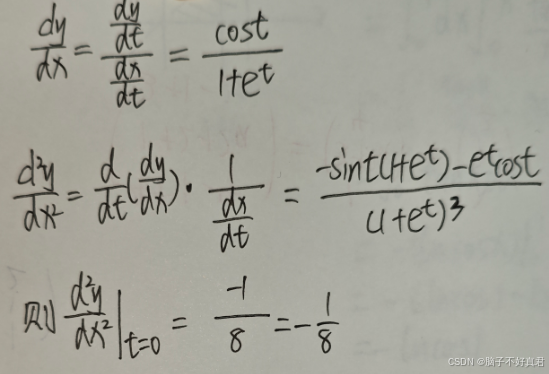 dy/dx = (dy/dt)/(dx/dt) = cost/(1+e^t)
d²y/dx² = d/dt(dy/dx)·1/(dx/dt) = (-sint(1+e^t)-e^tcost)/(1+e^t)³
则 d²y/dx²|t=0 = -1/8 = -1/8
CSDN @脑子不好真君